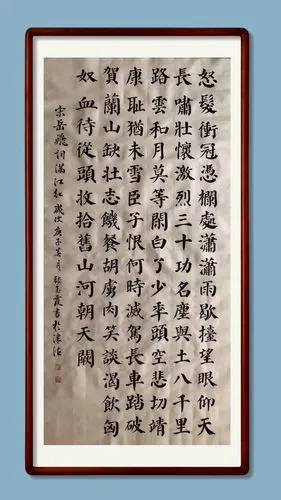 怒髮衝冠憑欄處瀟瀟雨歇擡望眼仰天
長嘯壯懷激烈三十功名塵與土八千里
路雲和月莫等閑白了少年頭空悲切靖
康耻猶未雪臣子恨何時滅駕長車踏破
賀蘭山缺壯志饑餐胡虜肉笑談渴飲匈
奴血待從頭收拾舊山河朝天闕
宋岳飛詞滿江紅 歲次庚子月張玉霞書於津沽